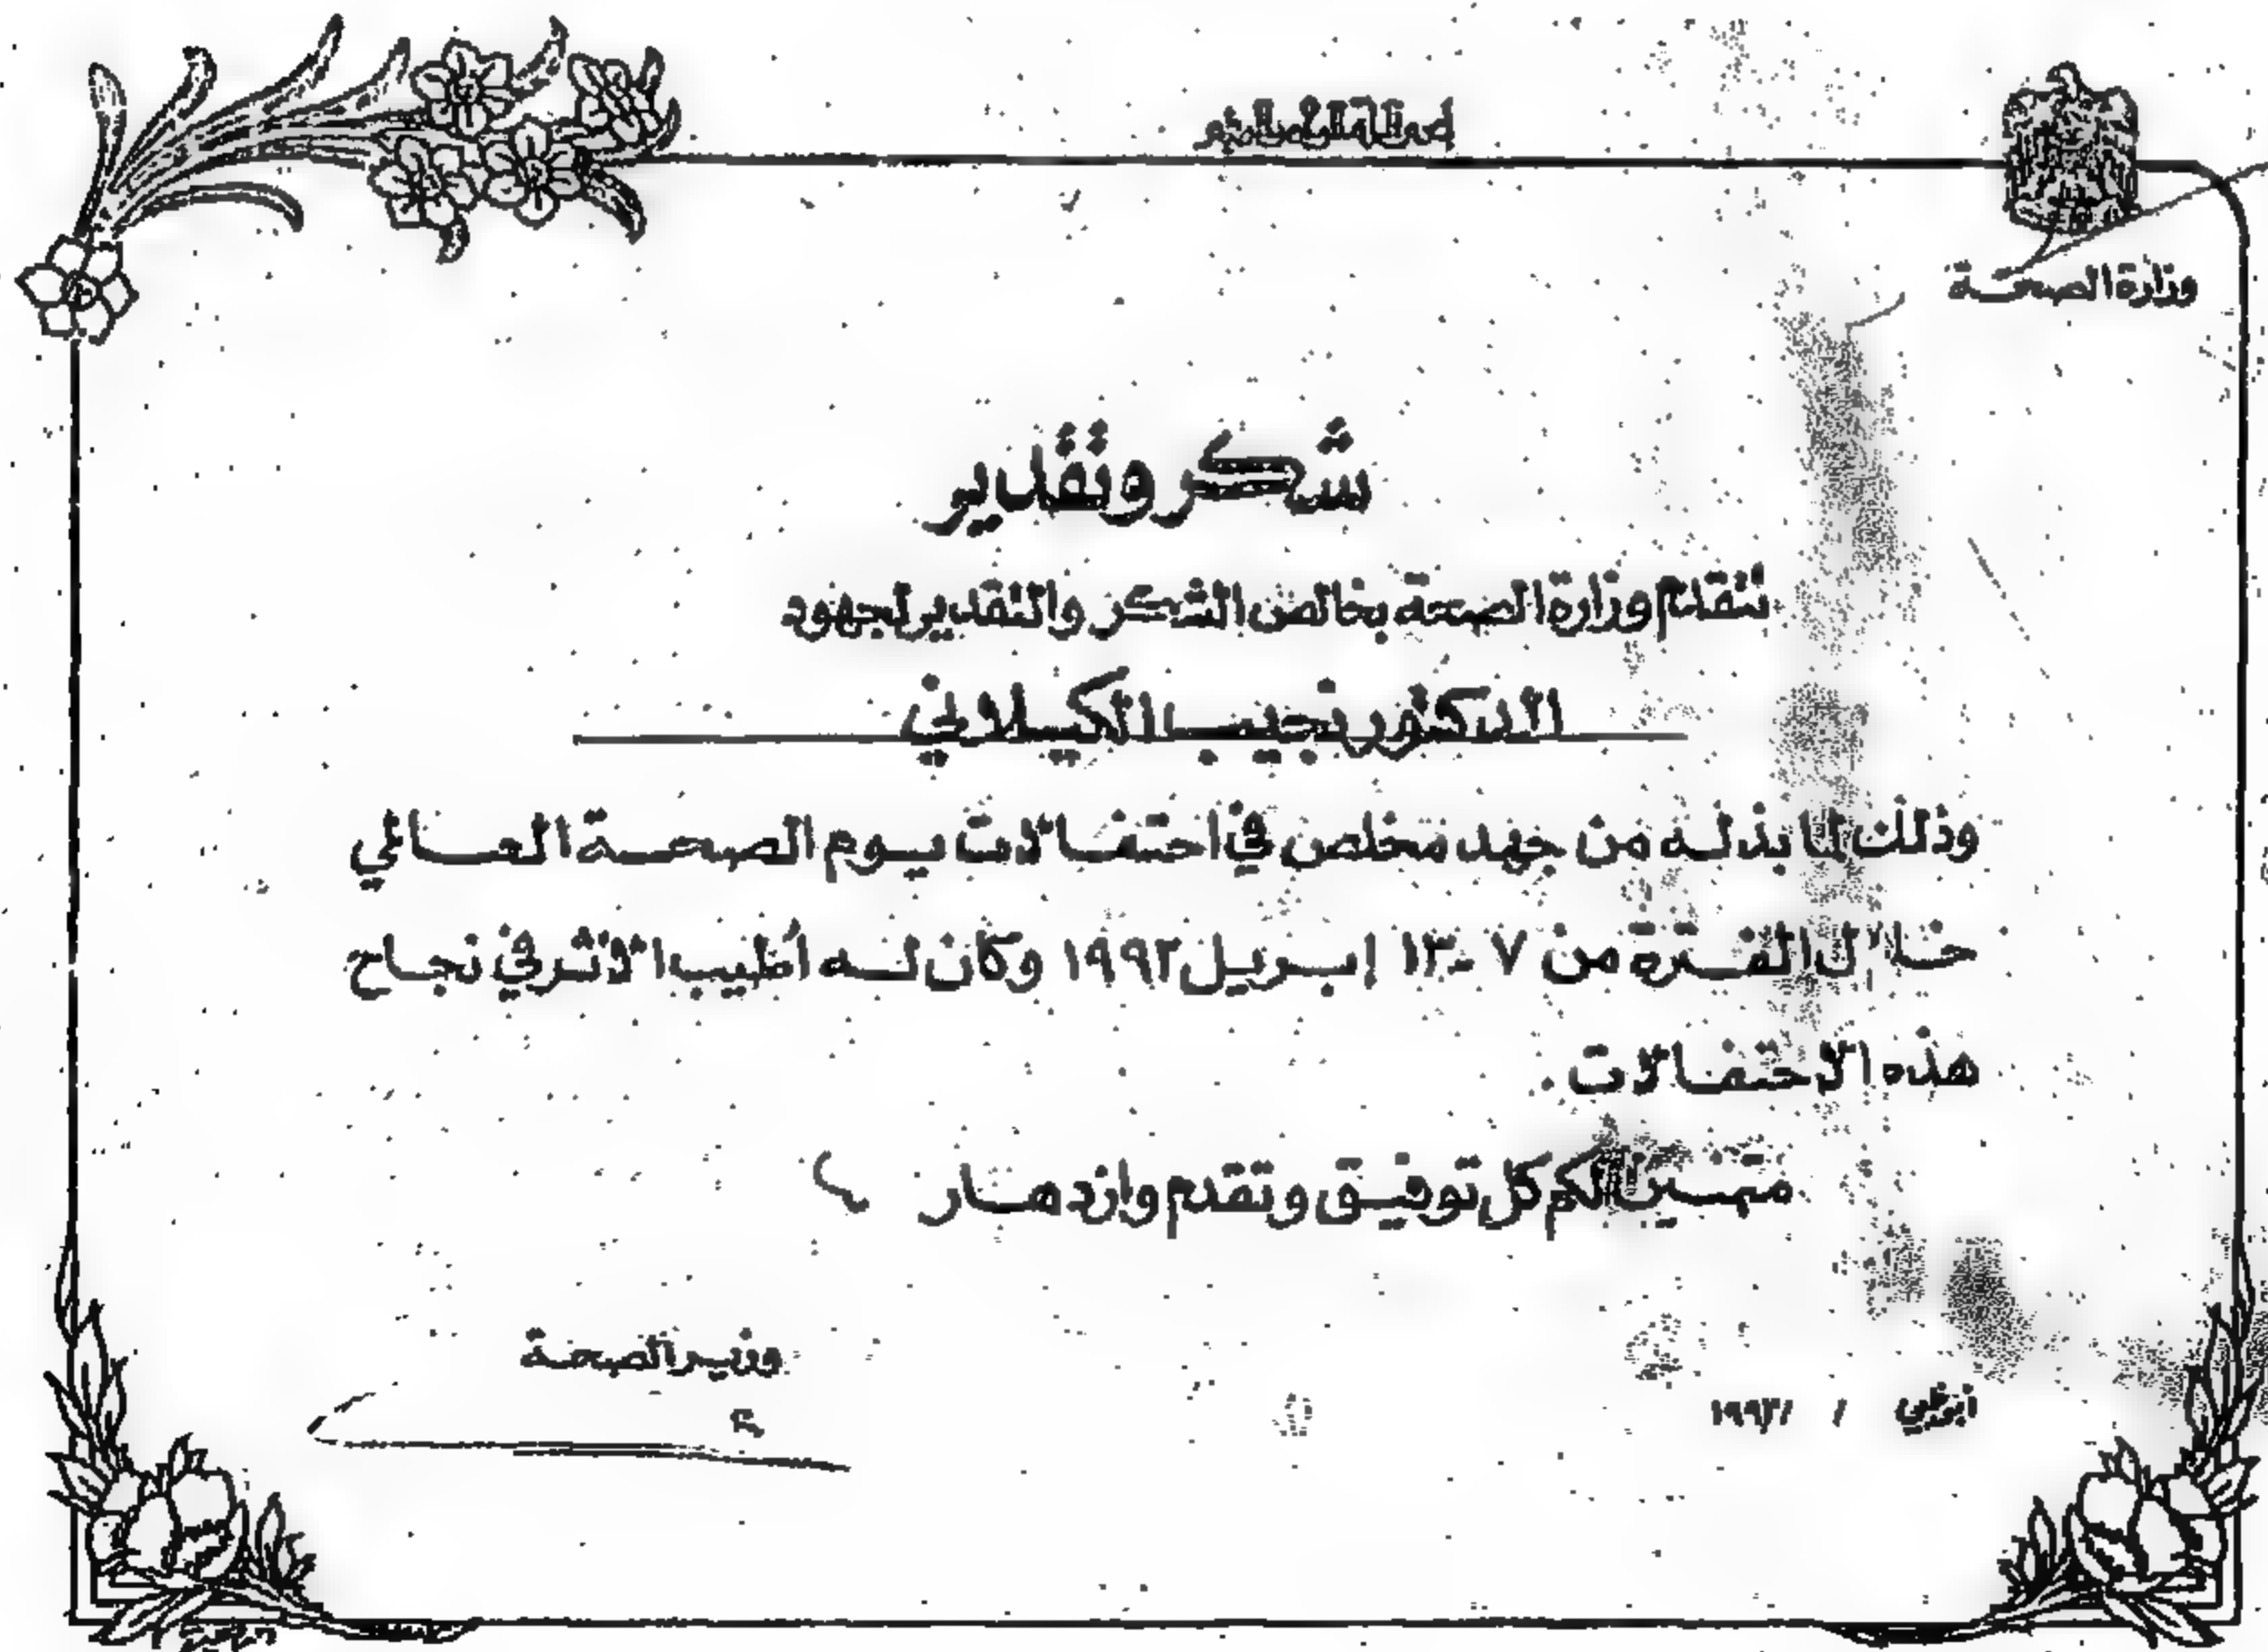 بسم الله الرحمن الرحيم
وزارة الصحة
شكر وتقدير
تتقدم وزارة الصحة بخالص الشكر والتقدير لجهود
الدكتور نجيب الكيلاني
وذلك لما بذله من جهد مخلص في احتفالات يوم الصحة العالمي
خلال الفترة من ٧ - ١٣ إبريل ١٩٩٢ وكان له أطيب الأثر في نجاح
هذه الاحتفالات .
متمنين لكم كل توفيق وتقدم وازدهار
وزير الصحة
أبوظبي / / ١٩٩٢